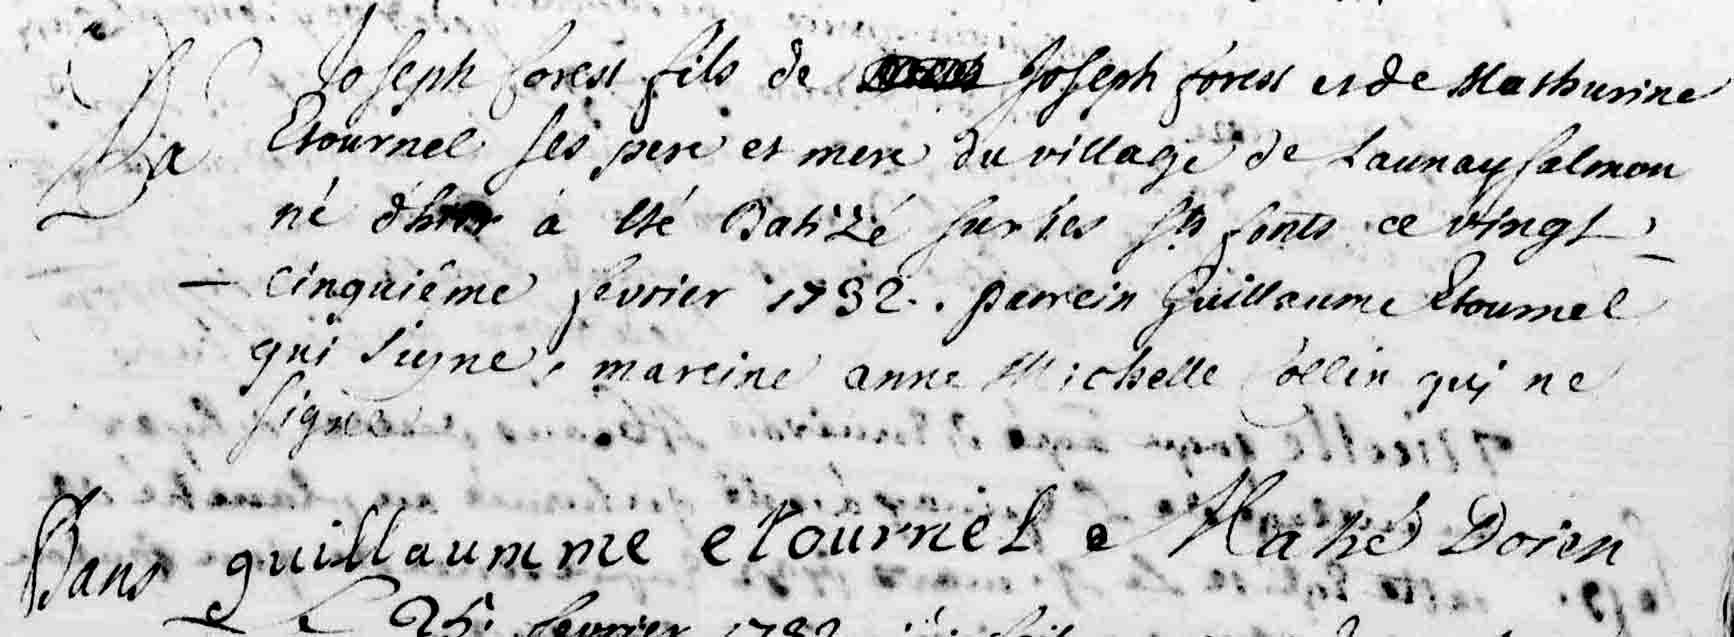 Joseph forest fils de Joseph forest et de Mathurine
Ba Etournel ses pere et mere du village de Launay salmon
né d'hier à eté Batizé sur les sts fonts ce vingt
cinquiême fevrier 1732. parein Guillaume Etournel
qui signe, mareine anne Michelle Collin qui ne
signe
Bans guillaumme etournel Mahé Doien
Le 25e fevrier 1732